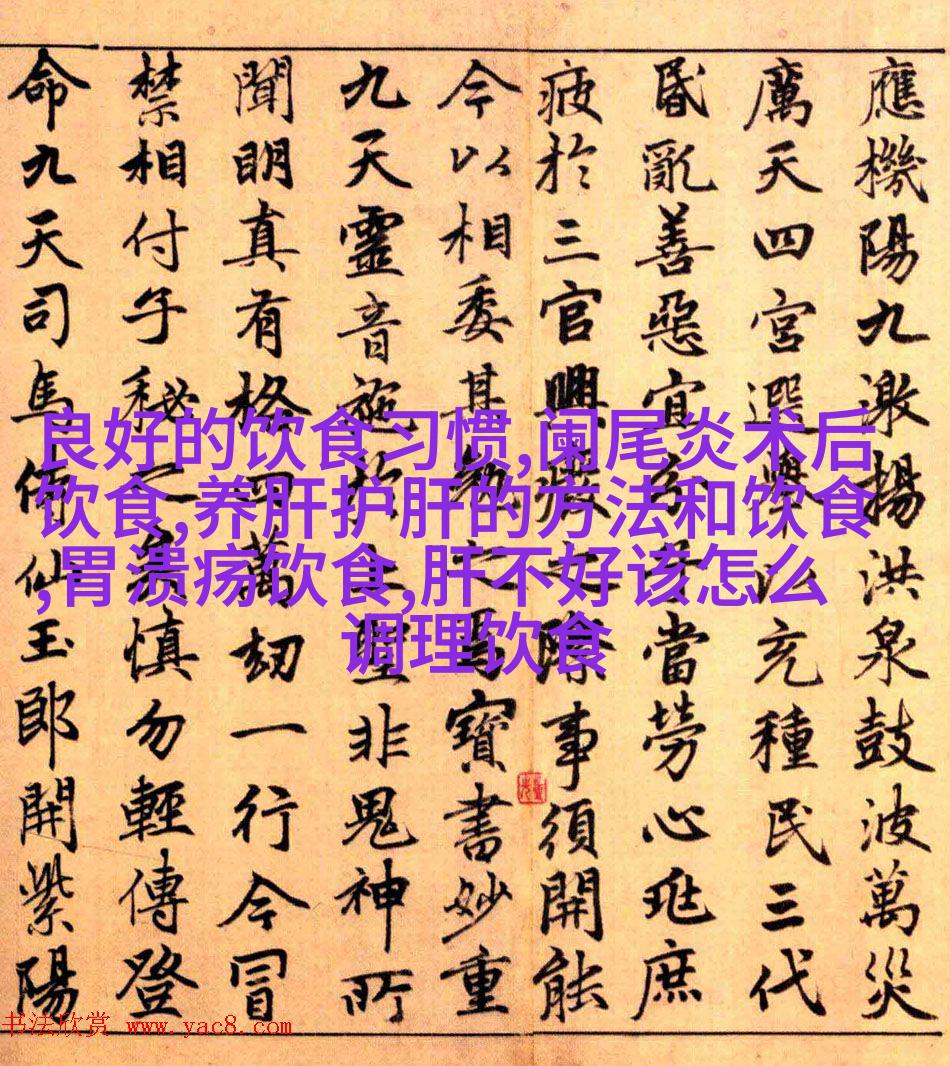 良好的饮食习惯,阑尾炎术后
饮食,养肝护肝的方法和饮食
,胃溃疡饮食,肝不好该怎么
调理饮食
應機陽九激揚洪泉鼓波萬災
厲天四宮選舉充種民三代
昏亂善惡宜分當勞心庶
疲於三官興廢之際事須開能
今以相委其勉之焉寶書妙重
九天靈音施於上聖非鬼神所
聞明真有格四萬劫一行今冒
禁相付子秘之慎勿輕傳登
命九天司馬侍仙玉郎開紫陽
书法欣赏 www.yac8.com